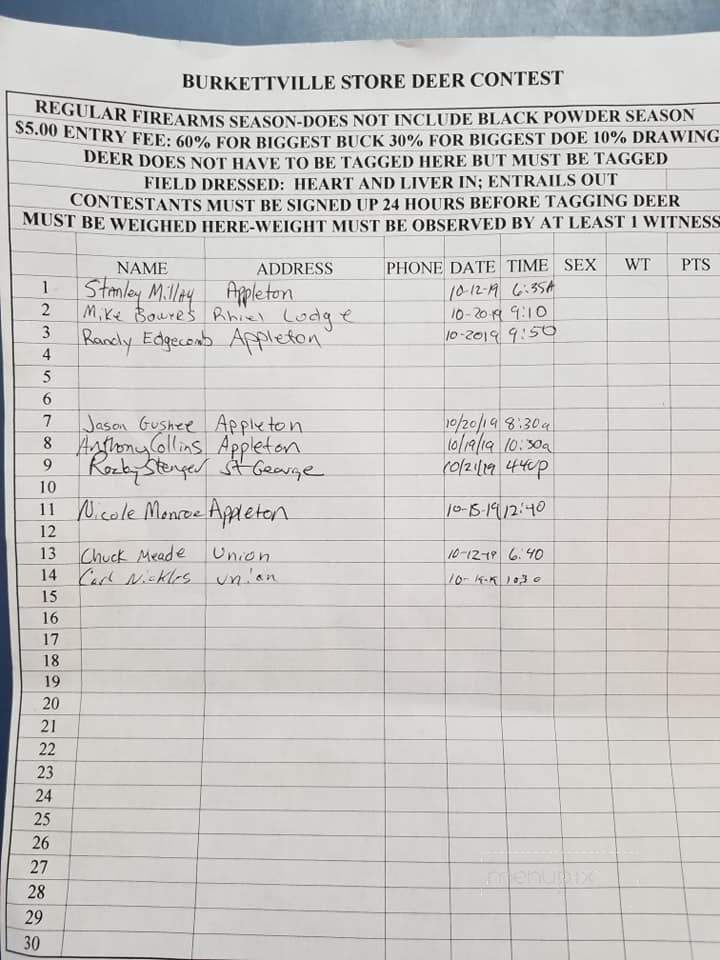 BURKETTVILLE STORE DEER CONTEST
REGULAR FIREARMS SEASON-DOES NOT INCLUDE BLACK POWDER SEASON
$5.00 ENTRY FEE: 60% FOR BIGGEST BUCK 30% FOR BIGGEST DOE 10% DRAWING
DEER DOES NOT HAVE TO BE TAGGED HERE BUT MUST BE TAGGED
FIELD DRESSED: HEART AND LIVER IN; ENTRAILS OUT
CONTESTANTS MUST BE SIGNED UP 24 HOURS BEFORE TAGGING DEER
MUST BE WEIGHED HERE-WEIGHT MUST BE OBSERVED BY AT LEAST 1 WITNESS
NAME ADDRESS PHONE DATE TIME SEX WT PTS
1 Stanley Millay Appleton 10-12-19 6:35A
2 Mike Lodge 10-20-19 9:10
3 Randy Edgecomb Appleton 10-2019 9:50
4
5
6
7 Jason Gushee Appleton 10/20/19 8:30a
8 Anthony Collins Appleton 10/19/19 10:30a
9 Stenger St George 10/21/19 440p
10
11 Nicole Monroe Appleton 10-15-19 12:40
12
13 Chuck Meade Union 10-12-19 6:40
14 Carl Nickles Union 1030
15
16
17
18
19
20
21
22
23
24
25
26
27
28
29
30
menupix